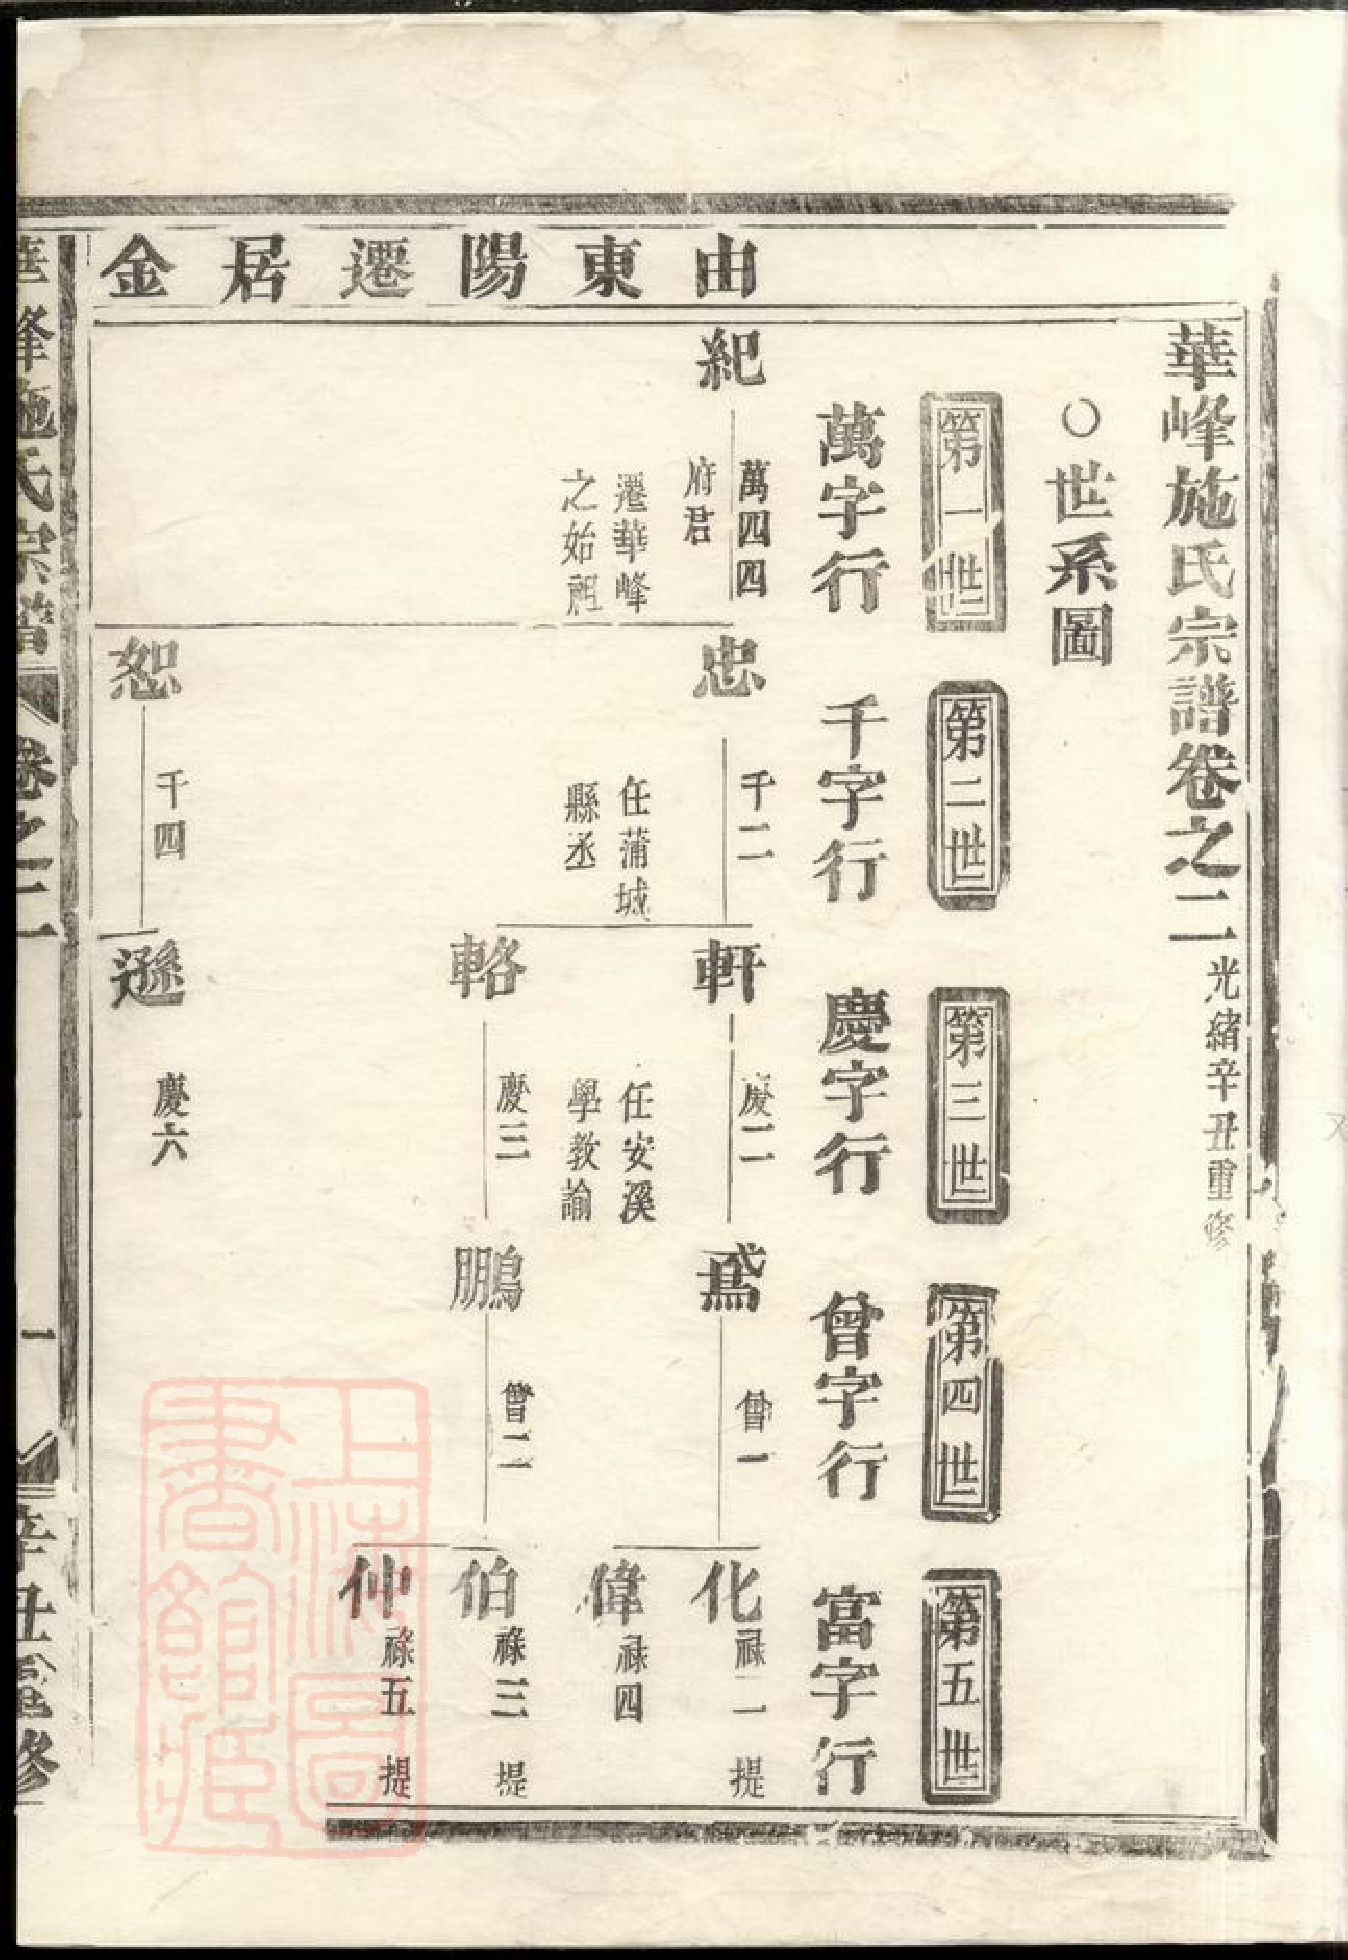 華峰施氏宗譜卷之二 光緒辛丑重修
○世系圖
第一世
第二世
第三世
第四世
第五世
萬字行
千字行
慶字行
曾字行
富字行
由東陽遷居金
紀
萬四四
府君
遷華峰
之始祖
忠
千二
任蒲城
縣丞
軒
慶二
任安溪
學教諭
鳶
曾一
化
祿二 提
偉
祿四
輅
慶三
鵬
曾二
伯
祿三 堤
仲
祿五 提
恕
千四
遜
慶六
華峰施氏宗譜
卷之二
一
辛丑重修
上海圖
書館藏